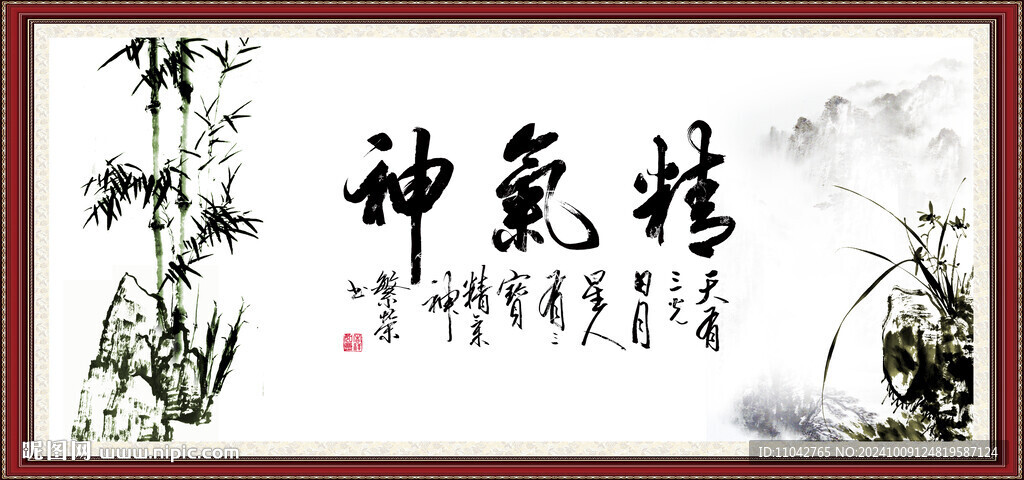 精氣神
天有
三光
日月
星人
有三
寶
精氣
神
繁榮
书
昵图网 www.nipic.com
ID:11042765 NO:20241009124819587124